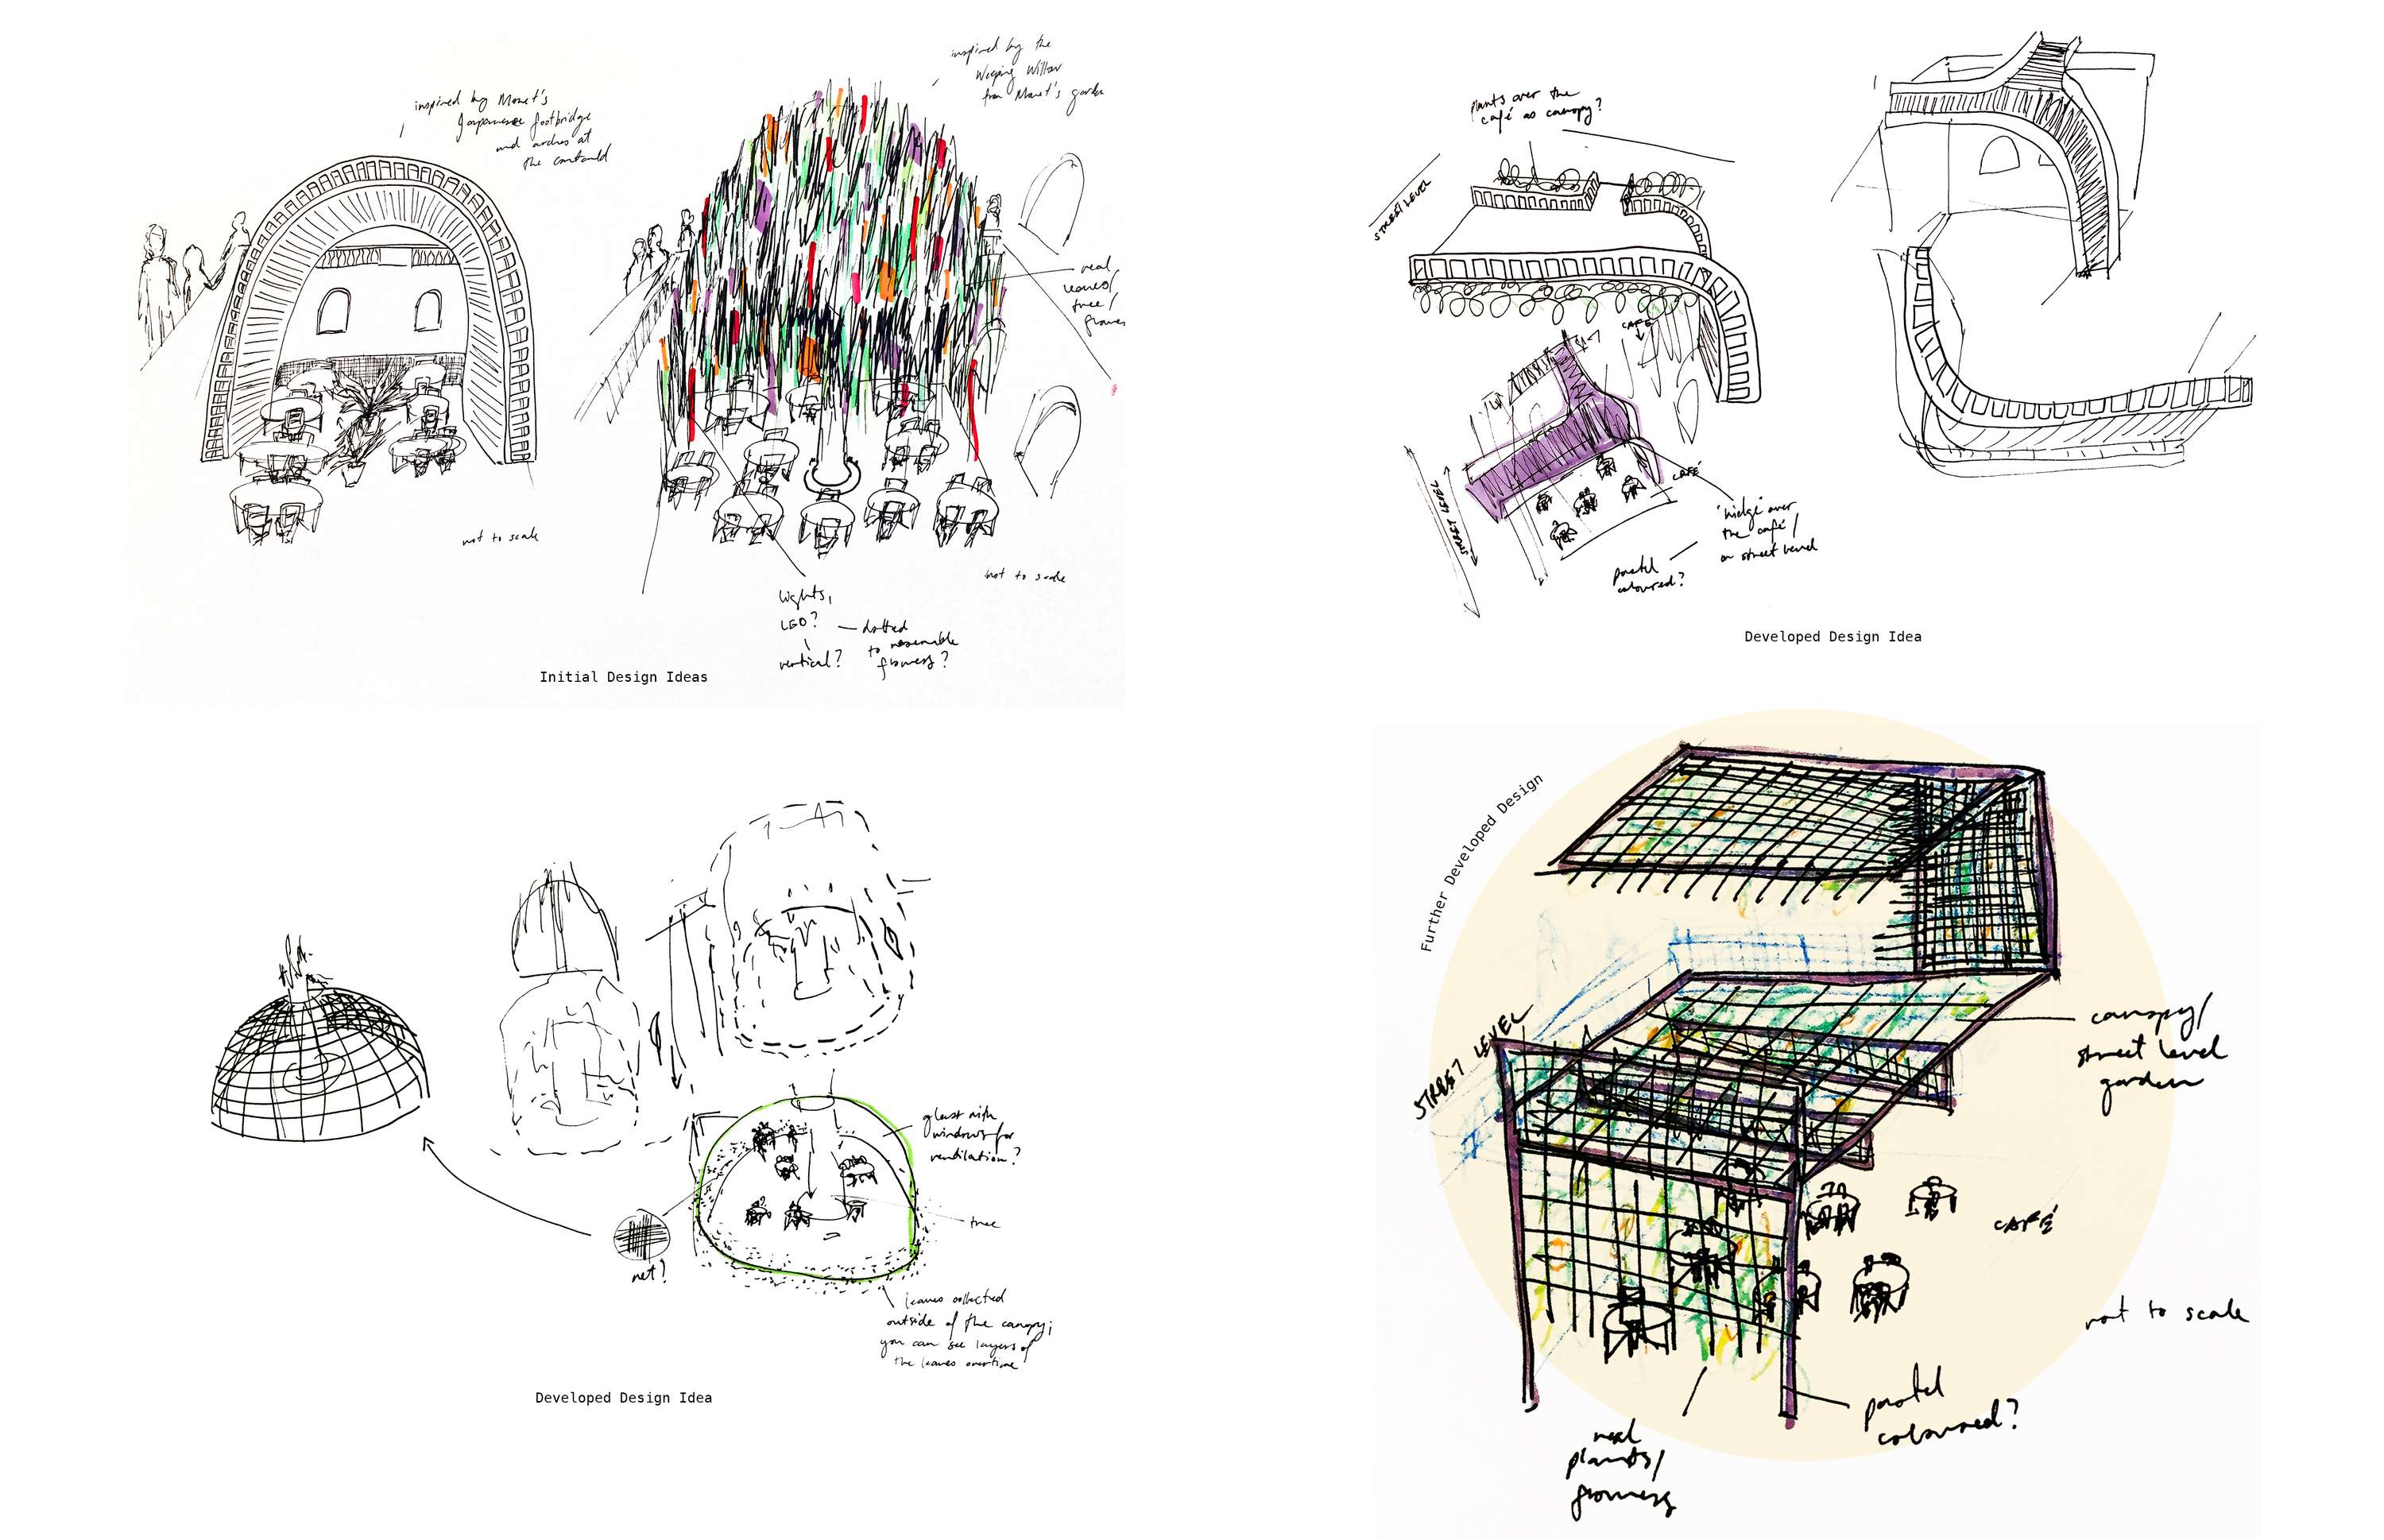 inspired by Monet's
Japanese footbridge
and arches at
the courtauld
inspired by the
Weeping Willow
from Monet's garden
real
leaves/
tree/
flowers
not to scale
not to scale
Lights,
LED?
vertical?
— dotted
to resemble
flowers?
Initial Design Ideas
plants over the
café as canopy?
STREET LEVEL
CAFÉ
STREET LEVEL
CAFÉ
bridge over
the café/
on street level
pastel
coloured?
Developed Design Idea
glass with
windows for
ventilation?
tree
net?
leaves collected
outside of the canopy;
you can see layers of
the leaves overtime
Developed Design Idea
Further Developed Design
STREET LEVEL
canopy/
street level
garden
CAFÉ
not to scale
pastel
coloured?
real
plants/
flowers